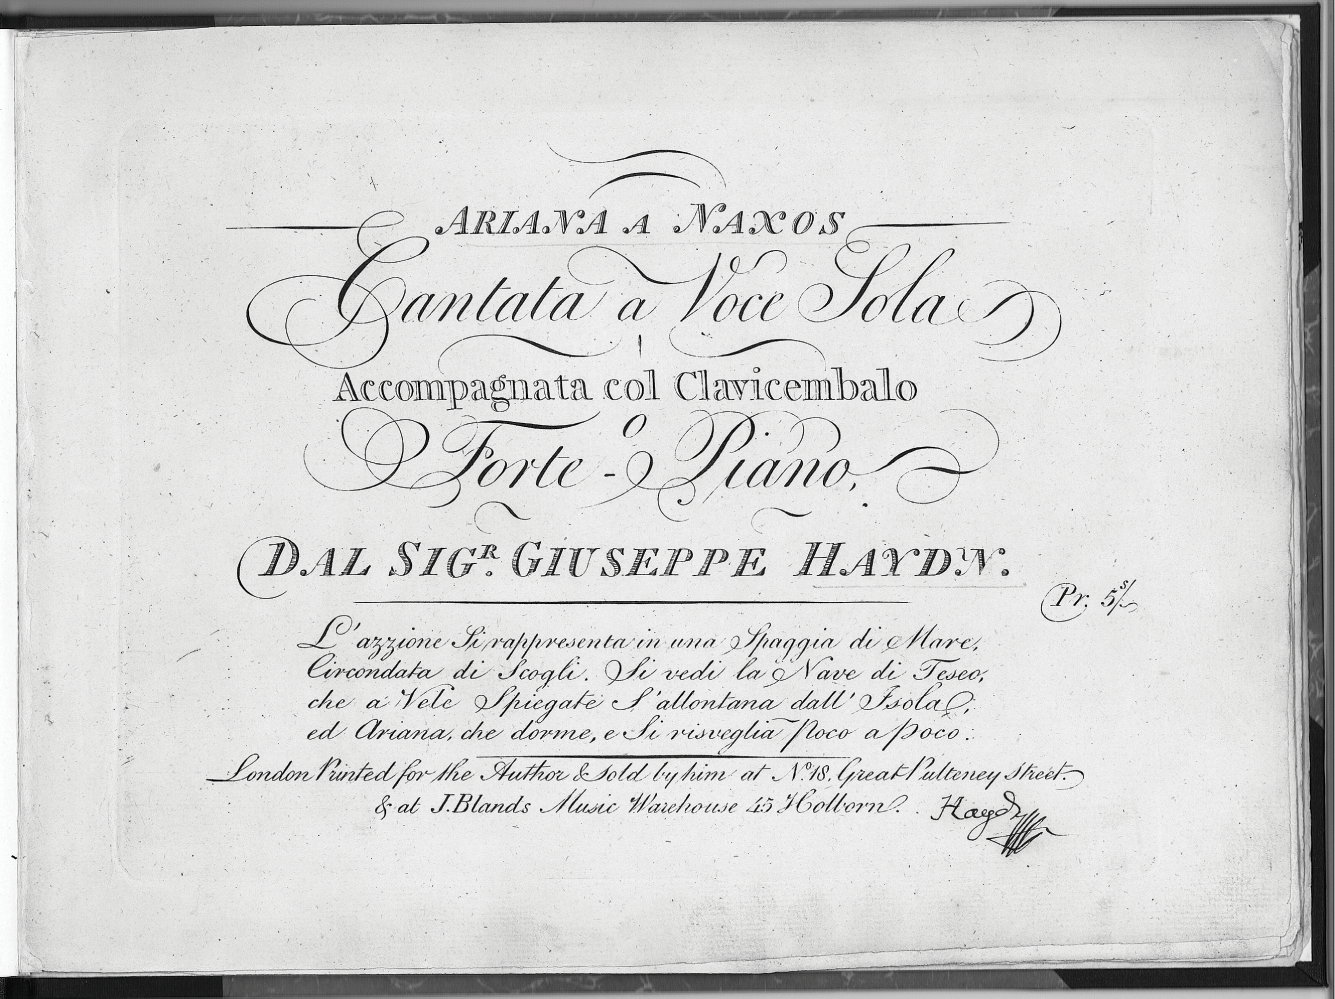 ARIANA A NAXOS
Cantata a Voce Sola
Accompagnata col Clavicembalo
O
Forte-Piano,
DAL SIGR. GIUSEPPE HAYDN.
Pr. 5s/
L'azzione Si rappresenta in una Spaggia di Mare,
Circondata di Scogli. Si vedi la Nave di Teseo,
che a Vele Spiegate S'allontana dall' Isola,
ed Ariana, che dorme, e Si risveglia Poco a poco.
London Printed for the Author & sold by him at No. 18, Great Pulteney Street.
& at J. Blands Music Warehouse 45 Holborn.
Haydn